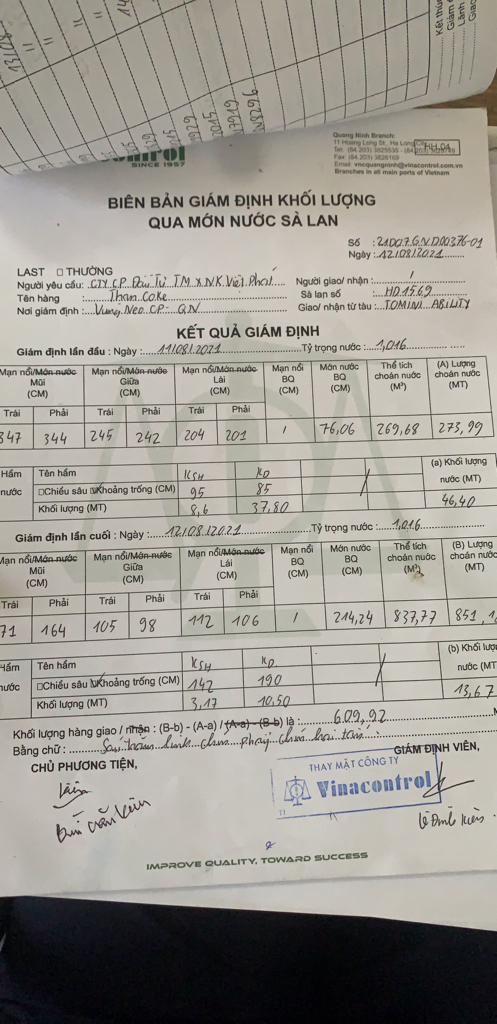 13/08
11
11
2015
17919
28296
Kết thú
Giám đ
Lãnh
Giao
control
SINCE 1957
Quang Ninh Branch:
11 Hoang Long St., Ha Long
HH-04
Tel: (84.203) 3825535 -
Fax: (84.203) 3826169
Email: vncquangninh@vinacontrol.com.vn
Branches in all main ports of Vietnam
BIÊN BẢN GIÁM ĐỊNH KHỐI LƯỢNG
QUA MỚN NƯỚC SÀ LAN
Số : 21D07GND00376-01
Ngày : 12/08/2021
LAST □ THƯỜNG
Người yêu cầu: CTY CP Đầu Tư TM XNK Việt Phát Người giao/ nhận : /
Tên hàng : Than Coke Sà lan số : HD1569
Nơi giám định : Vùng Neo CP - QN Giao/ nhận từ tàu : TOMINI ABILITY
KẾT QUẢ GIÁM ĐỊNH
Giám định lần đầu : Ngày : 11/08/2021 Tỷ trọng nước : 1,016
Mạn nổi/Món nước Mũi (CM) Mạn nổi/Món nước Giữa (CM) Mạn nổi/Món nước Lái (CM) Mạn nổi BQ (CM) Món nước BQ (CM) Thể tích choán nước (M³) (A) Lượng choán nước (MT)
Trái Phải Trái Phải Trái Phải
347 344 245 242 204 201 / 76,06 269,68 273,99
Hầm nước Tên hầm KSH KD (a) Khối lượng nước (MT)
□Chiều sâu □Khoảng trống (CM) 95 85
Khối lượng (MT) 8,6 37,80 46,40
Giám định lần cuối : Ngày : 12/08/2021 Tỷ trọng nước : 1,016
Mạn nổi/Món nước Mũi (CM) Mạn nổi/Món nước Giữa (CM) Mạn nổi/Món nước Lái (CM) Mạn nổi BQ (CM) Món nước BQ (CM) Thể tích choán nước (M³) (B) Lượng choán nước (MT)
Trái Phải Trái Phải Trái Phải
71 164 105 98 112 106 / 214,24 837,77 851,1
Hầm nước Tên hầm KSH KD (b) Khối lượn nước (MT)
□Chiều sâu □Khoảng trống (CM) 142 190
Khối lượng (MT) 3,17 10,50 13,67
Khối lượng hàng giao / nhận : (B-b) - (A-a) / (A-a) - (B-b) là : 609,92 M
Bằng chữ : Sáu trăm linh chín phẩy chín hai tấn
CHỦ PHƯƠNG TIỆN, GIÁM ĐỊNH VIÊN,
THAY MẶT CÔNG TY
Vinacontrol
IMPROVE QUALITY, TOWARD SUCCESS